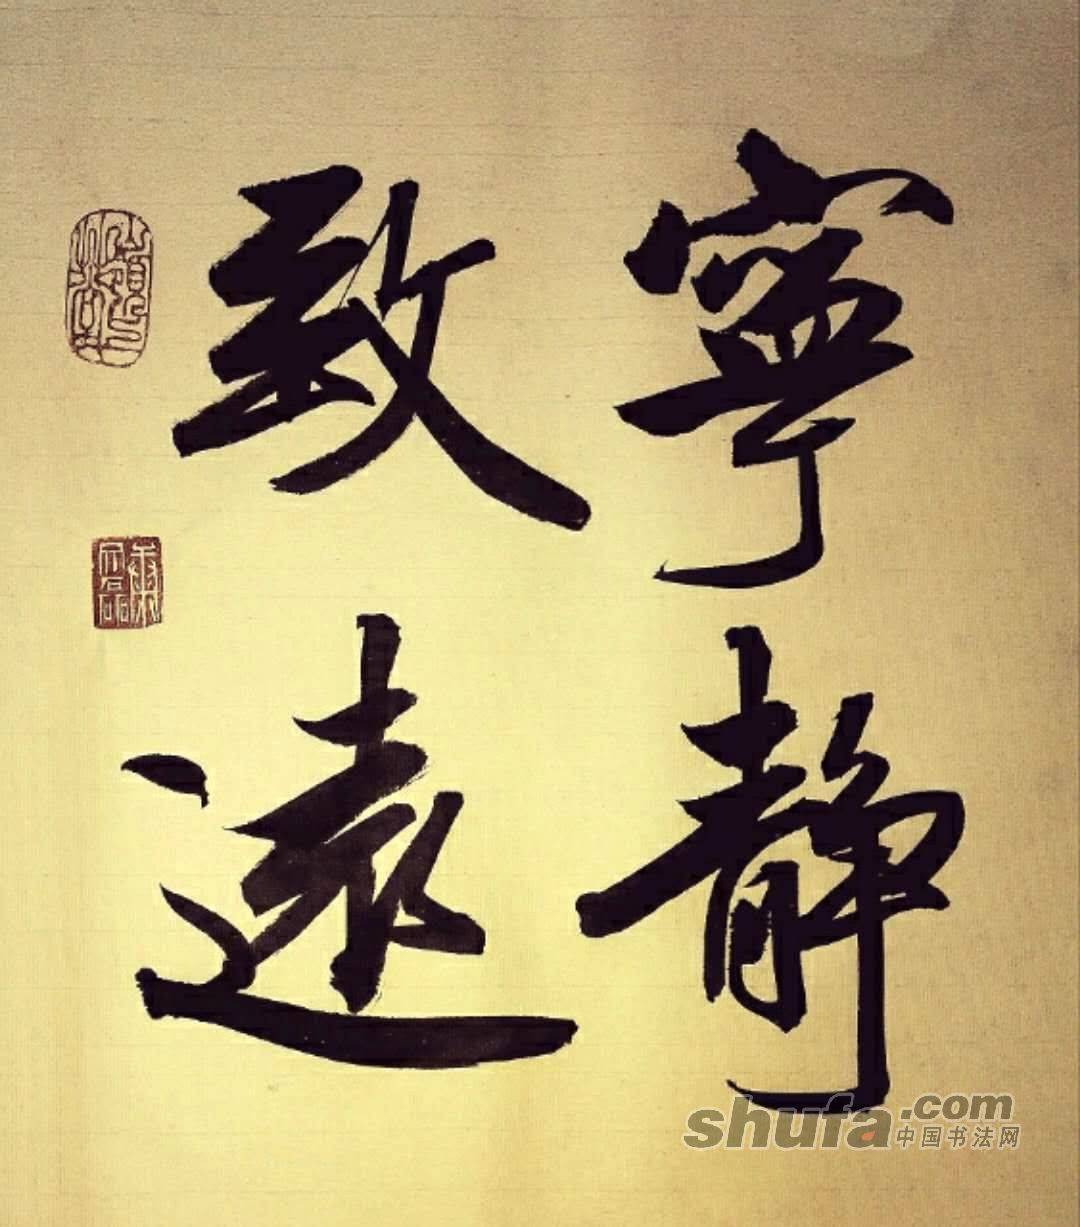 寧靜
致遠
shufa.com
中国书法网